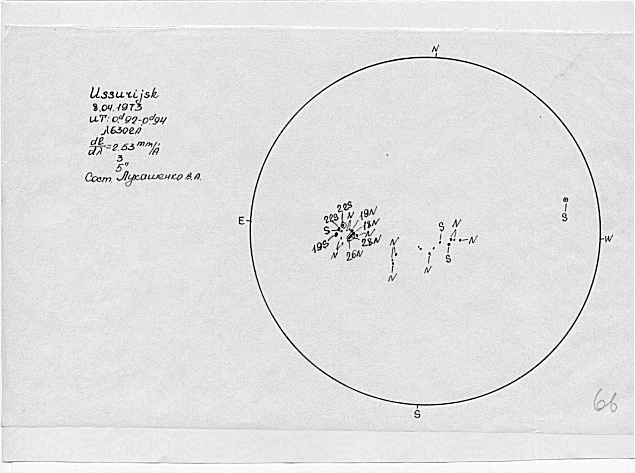 Ussurijsk
8.04.1973
UT: 0ᵈ92-0ᵈ94
λ6302Å
dl/dλ = 2.53 mm/Å
3
5"
Сост. Лукашенко В.А.
N
E
W
S
22S
22S
N
19N
18N
S
N
28N
19S
N
26N
N
N
S
N
N
S
N
S
66